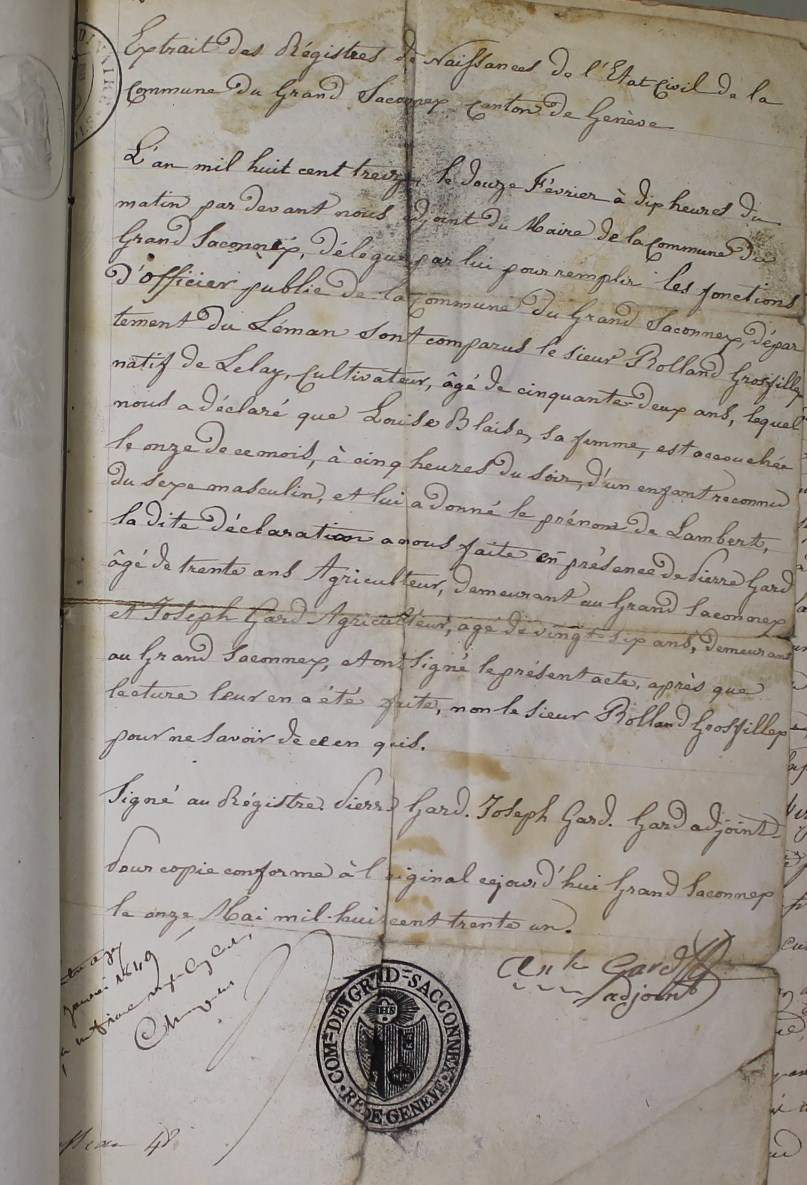 Extrait des Régistres de Naissances de l'Etat Civil de la
Commune du Grand Saconnex Canton de Genève
L'an mil huit cent treize, le douze Février à dix heures du
matin par devant nous adjoint du Maire de la Commune du
Grand Saconnex, délégué par lui pour remplir les fonctions
d'officier public de la Commune du Grand Saconnex, dépar
tement du Léman sont comparus le sieur Rolland Grosfillex
natif de Lelay, Cultivateur, âgé de cinquante deux ans, lequel
nous a déclaré que Louise Blaise, sa femme, est accouchée
le onze de ce mois, à cinq heures du soir, d'un enfant reconnu
du sexe masculin, et lui a donné le prénom de Lambert,
la dite déclaration a nous faite en présence de Pierre Gard
âgé de trente ans Agriculteur, demeurant au Grand Saconnex
et Joseph Gard Agriculteur, agé de vingt six ans, demeurant
au Grand Saconnex, et ont signé le présent acte, après que
lecture leur en a été faite, non le sieur Rolland Grosfillex
pour ne savoir de ce en quis.
Signé au Régistre. Pierre Gard. Joseph Gard. Gard adjoint
Pour copie conforme à l'original ce jourd'hui Grand Saconnex
le onze Mai mil huit cent trente un.
Gard
adjoint
janvier 1849
COM=DE GRAD=SACCONNEX
REDE GENEVE